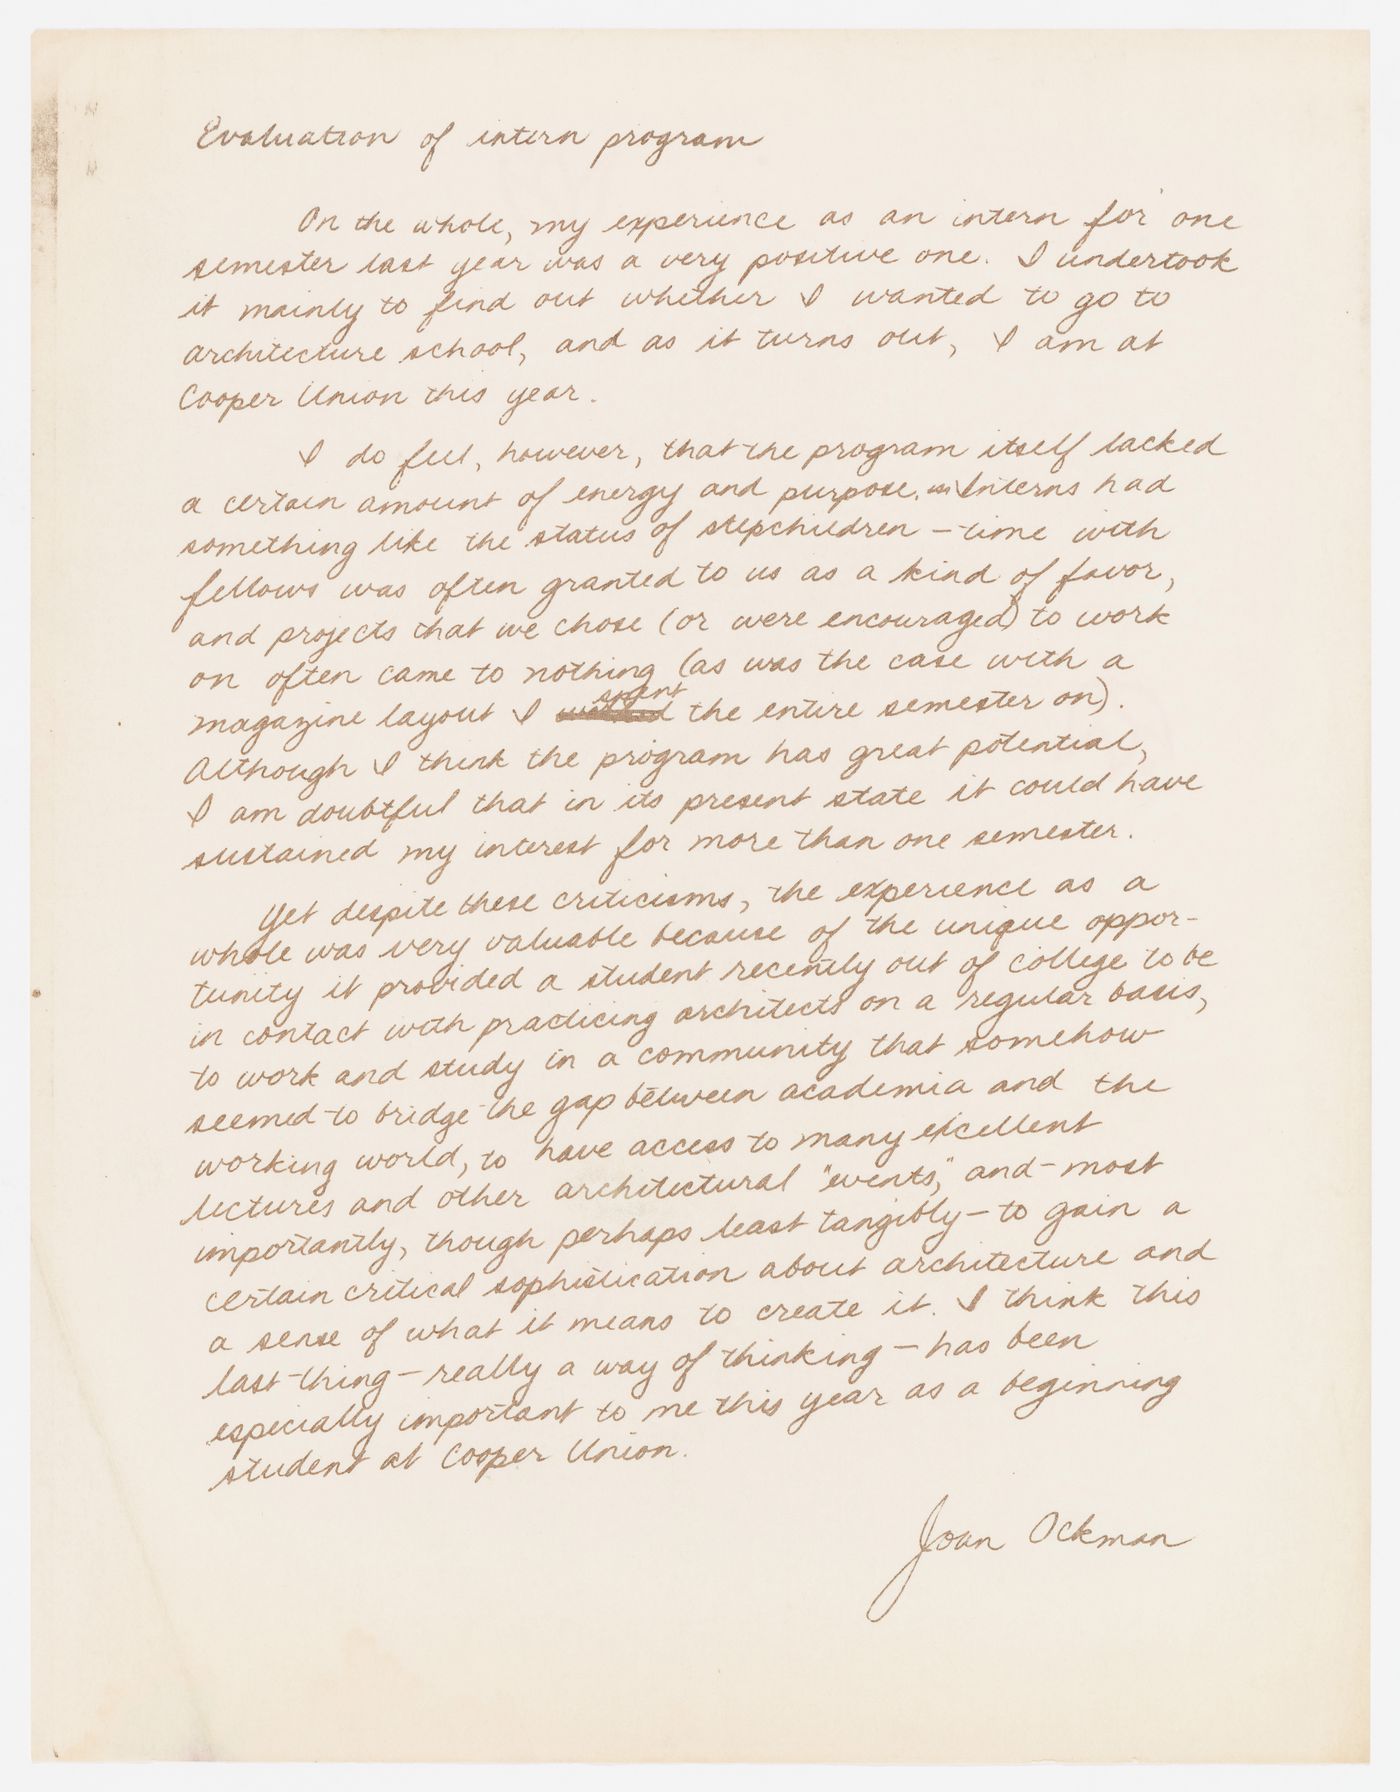 Evaluation of intern program
On the whole, my experience as an intern for one
semester last year was a very positive one. I undertook
it mainly to find out whether I wanted to go to
architecture school, and as it turns out, I am at
Cooper Union this year.
I do feel, however, that the program itself lacked
a certain amount of energy and purpose. Interns had
something like the status of stepchildren – time with
fellows was often granted to us as a kind of favor,
and projects that we chose (or were encouraged) to work
on often came to nothing (as was the case with a
magazine layout I spent the entire semester on).
Although I think the program has great potential,
I am doubtful that in its present state it could have
sustained my interest for more than one semester.
Yet despite these criticisms, the experience as a
whole was very valuable because of the unique oppor-
tunity it provided a student recently out of college to be
in contact with practicing architects on a regular basis,
to work and study in a community that somehow
seemed to bridge the gap between academia and the
working world, to have access to many excellent
lectures and other architectural "events," and – most
importantly, though perhaps least tangibly – to gain a
certain critical sophistication about architecture and
a sense of what it means to create it. I think this
last thing – really a way of thinking – has been
especially important to me this year as a beginning
student at Cooper Union.
Joan Ockman